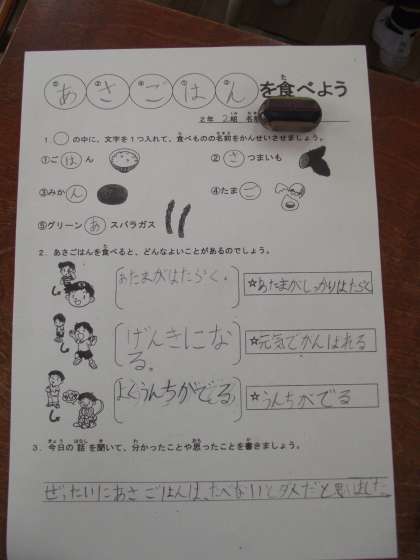 あさごはんを食べよう
2年 2組 名前
1. ○の中に、文字を1つ入れて、食べものの名前をかんせいさせましょう。
①ごはん ②さつまいも
③みかん ④たまご
⑤グリーンあスパラガス
2. あさごはんを食べると、どんなよいことがあるのでしょう。
あたまがはたらく。 ☆あたまがしっかりはたらく
げんきにな
る。 ☆元気でがんばれる
よくうんちがでる ☆うんちがでる
3. 今日の話を聞いて、分かったことや思ったことを書きましょう。
ぜったいにあさごはんは、たべないとダメだと思いました。